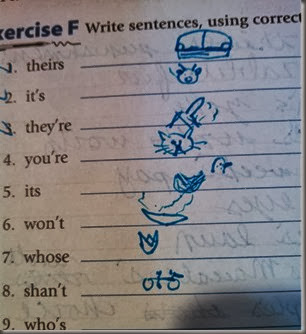 xercise F Write sentences, using correct
1. theirs
2. it's
3. they're
4. you're
5. its
6. won't
7. whose
8. shan't
9. who's